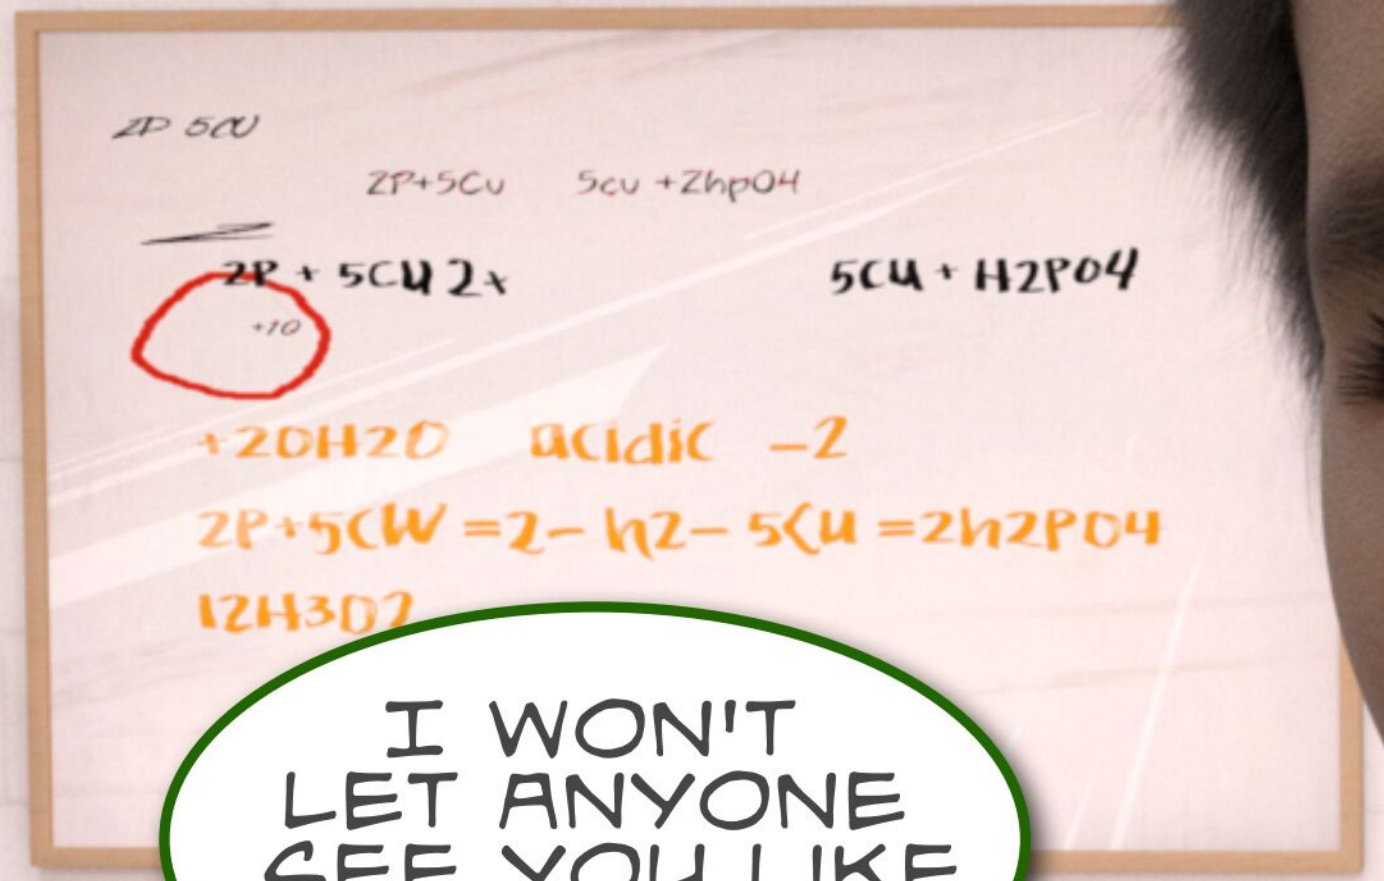 2P 5CU
2P+5Cu 5cu +2hpO4
2P + 5CU 2+ 5CU + H2PO4
+10
+20H2O acidic -2
2P+5CW =2- h2- 5CU =2h2PO4
12H3O2
I WON'T
LET ANYONE
SEE YOU LIKE